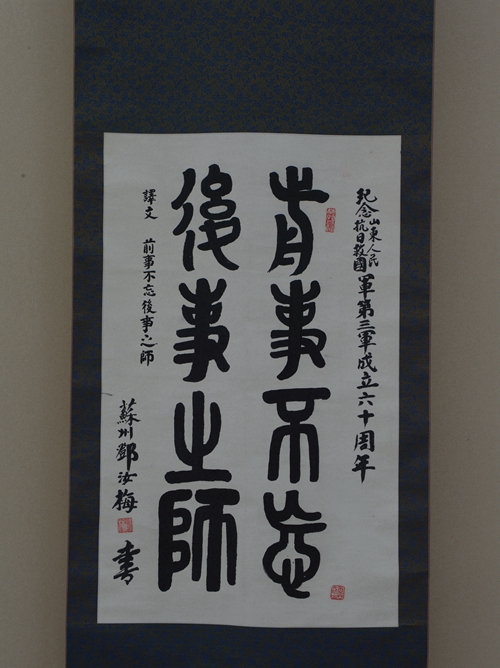 紀念山東人民抗日救國軍第三軍成立六十周年
前事不忘
後事之師
譯文 前事不忘後事之師
蘇州鄧汝梅書